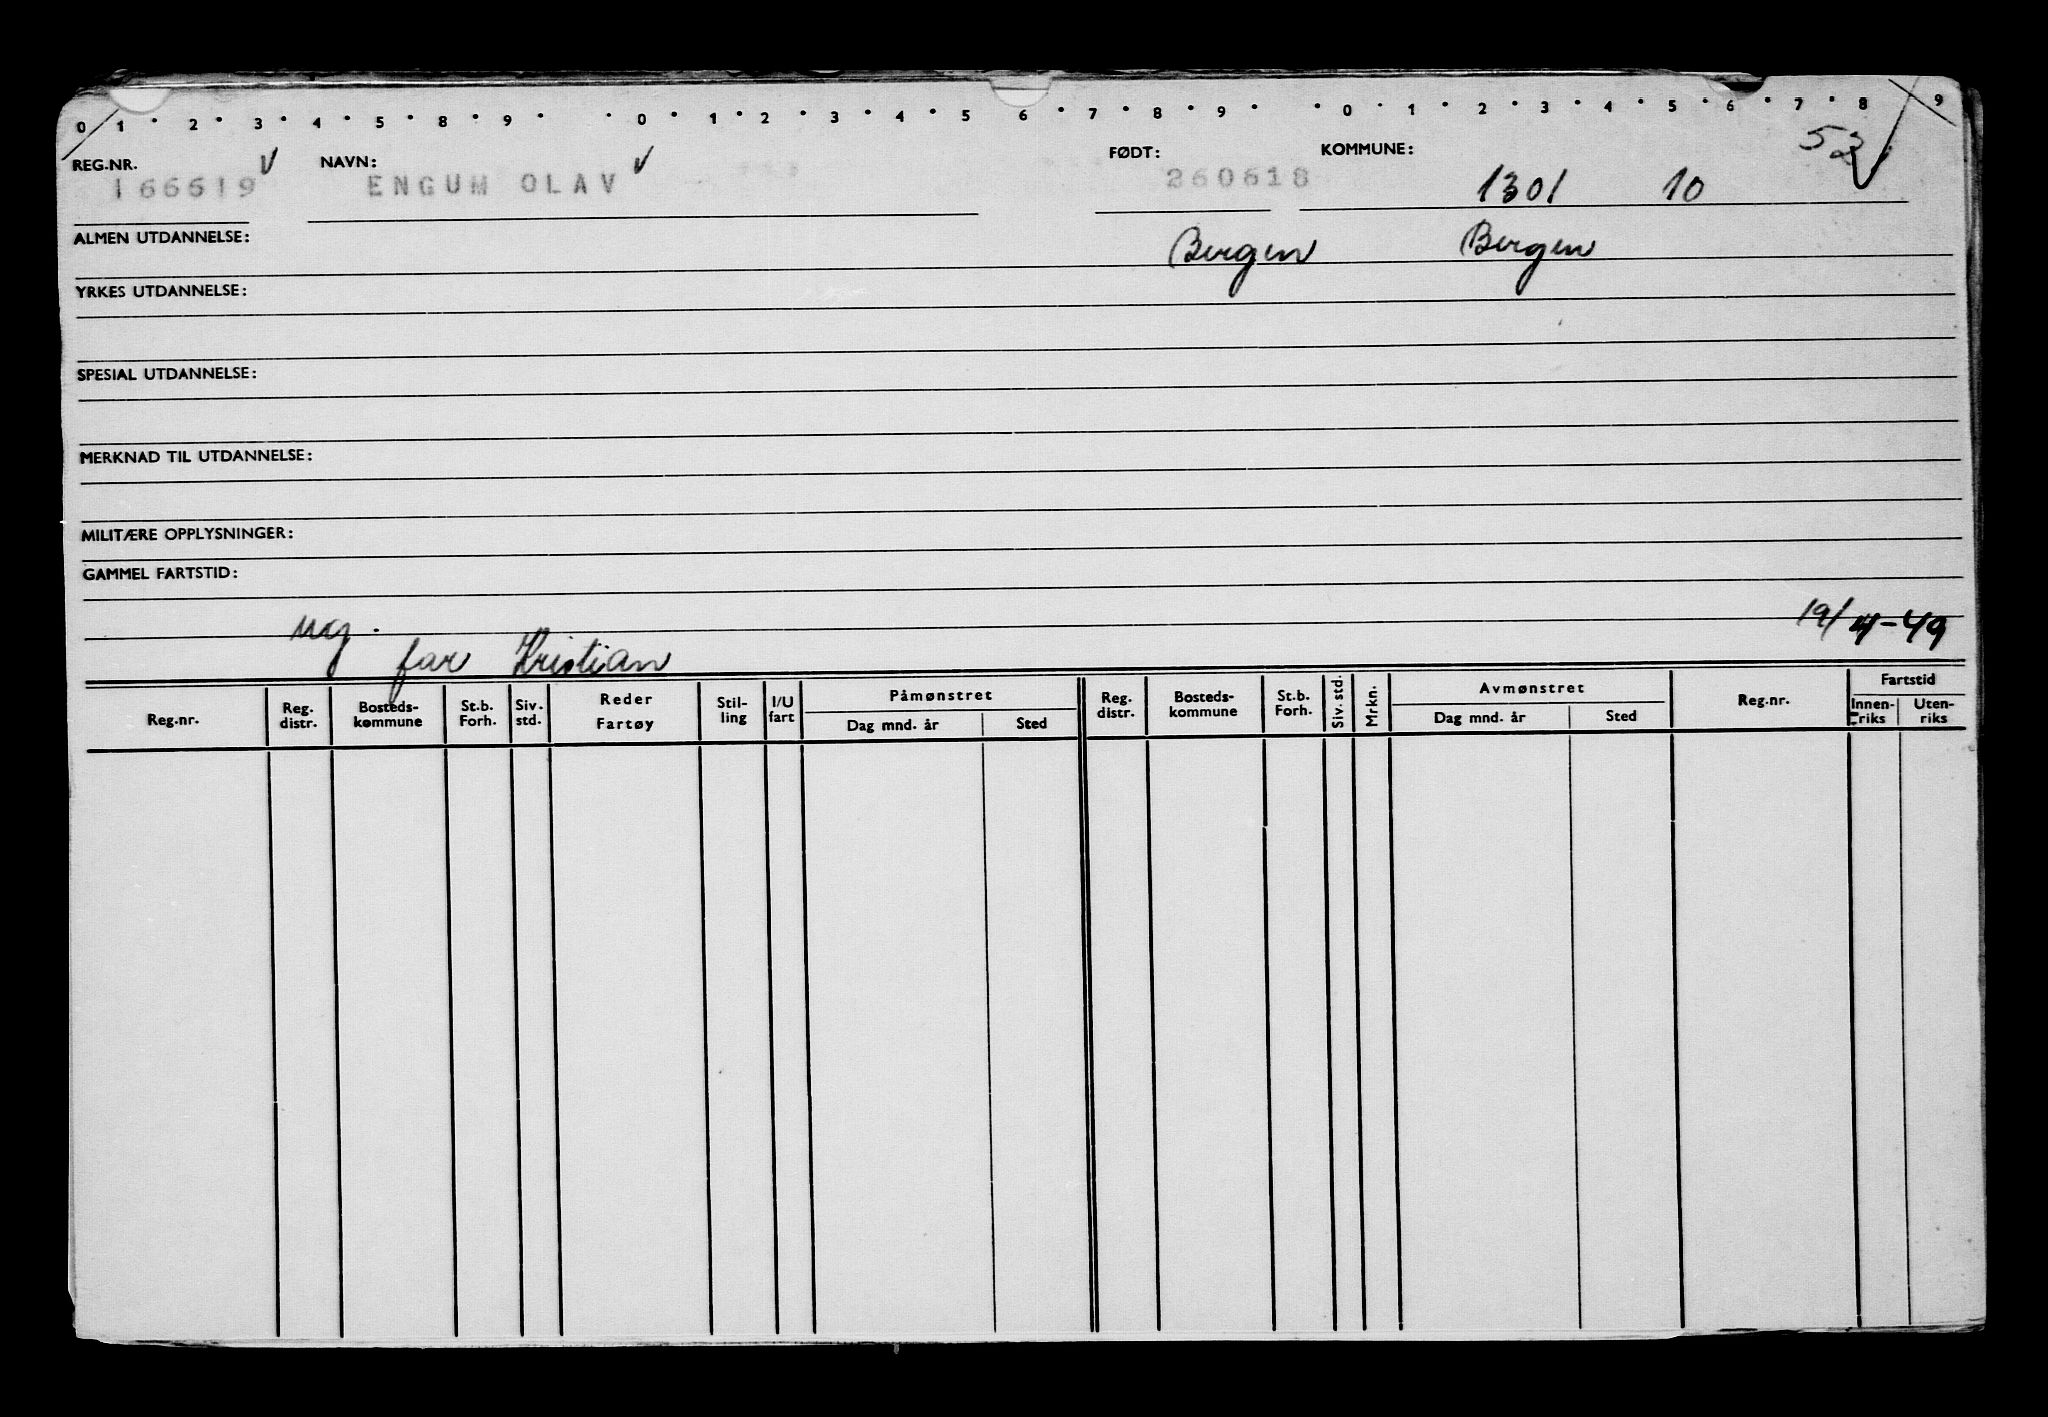 0 1 . 2 . 3 . 4 . 5 . 8 . 9 . . 0 . 1 . 2 . 3 . 4 . 5 6 . 7 . 8 . 9 . . 0 . 1 . 2 . 3 . 4 . 5 . 6 . 7 . 8 9
REG.NR. NAVN: FØDT: KOMMUNE: 52
166619 ENGUM OLAV 260618 1301 10
ALMEN UTDANNELSE: Bergen Bergen
YRKES UTDANNELSE:
SPESIAL UTDANNELSE:
MERKNAD TIL UTDANNELSE:
MILITÆRE OPPLYSNINGER:
GAMMEL FARTSTID:
ug. 19/4-49
far Kristian
Reg.nr. Reg. distr. Bosteds-kommune St.b. Forh. Siv. std. Reder Fartøy Stil-ling I/U fart Påmønstret Dag mnd. år Sted Reg. distr. Bosteds-kommune St.b. Forh. Siv. std. Mrkn. Avmønstret Dag mnd. år Sted Reg.nr. Fartstid Innen-riks Uten-riks